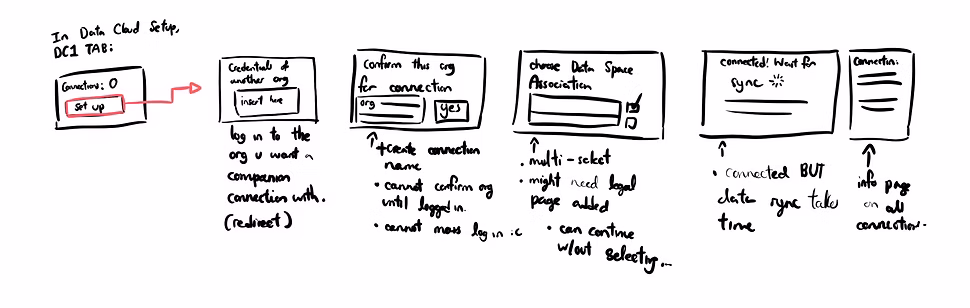 In Data Cloud Setup,
DC1 TAB:
Connections: 0
set up
Credentials of
another org
insert here
log in to the
org u want a
companion
connection with.
(redirect)
Confirm this org
for connection
org
yes
+create connection
name
• cannot confirm org
until logged in.
• cannot mass log in :c
choose Data Space
Association
• multi-select
• might need legal
page added
• can continue
w/out selecting...
connected! Wait for
sync
• connected BUT
data sync takes
time
Connection:
info page
on all
connection..